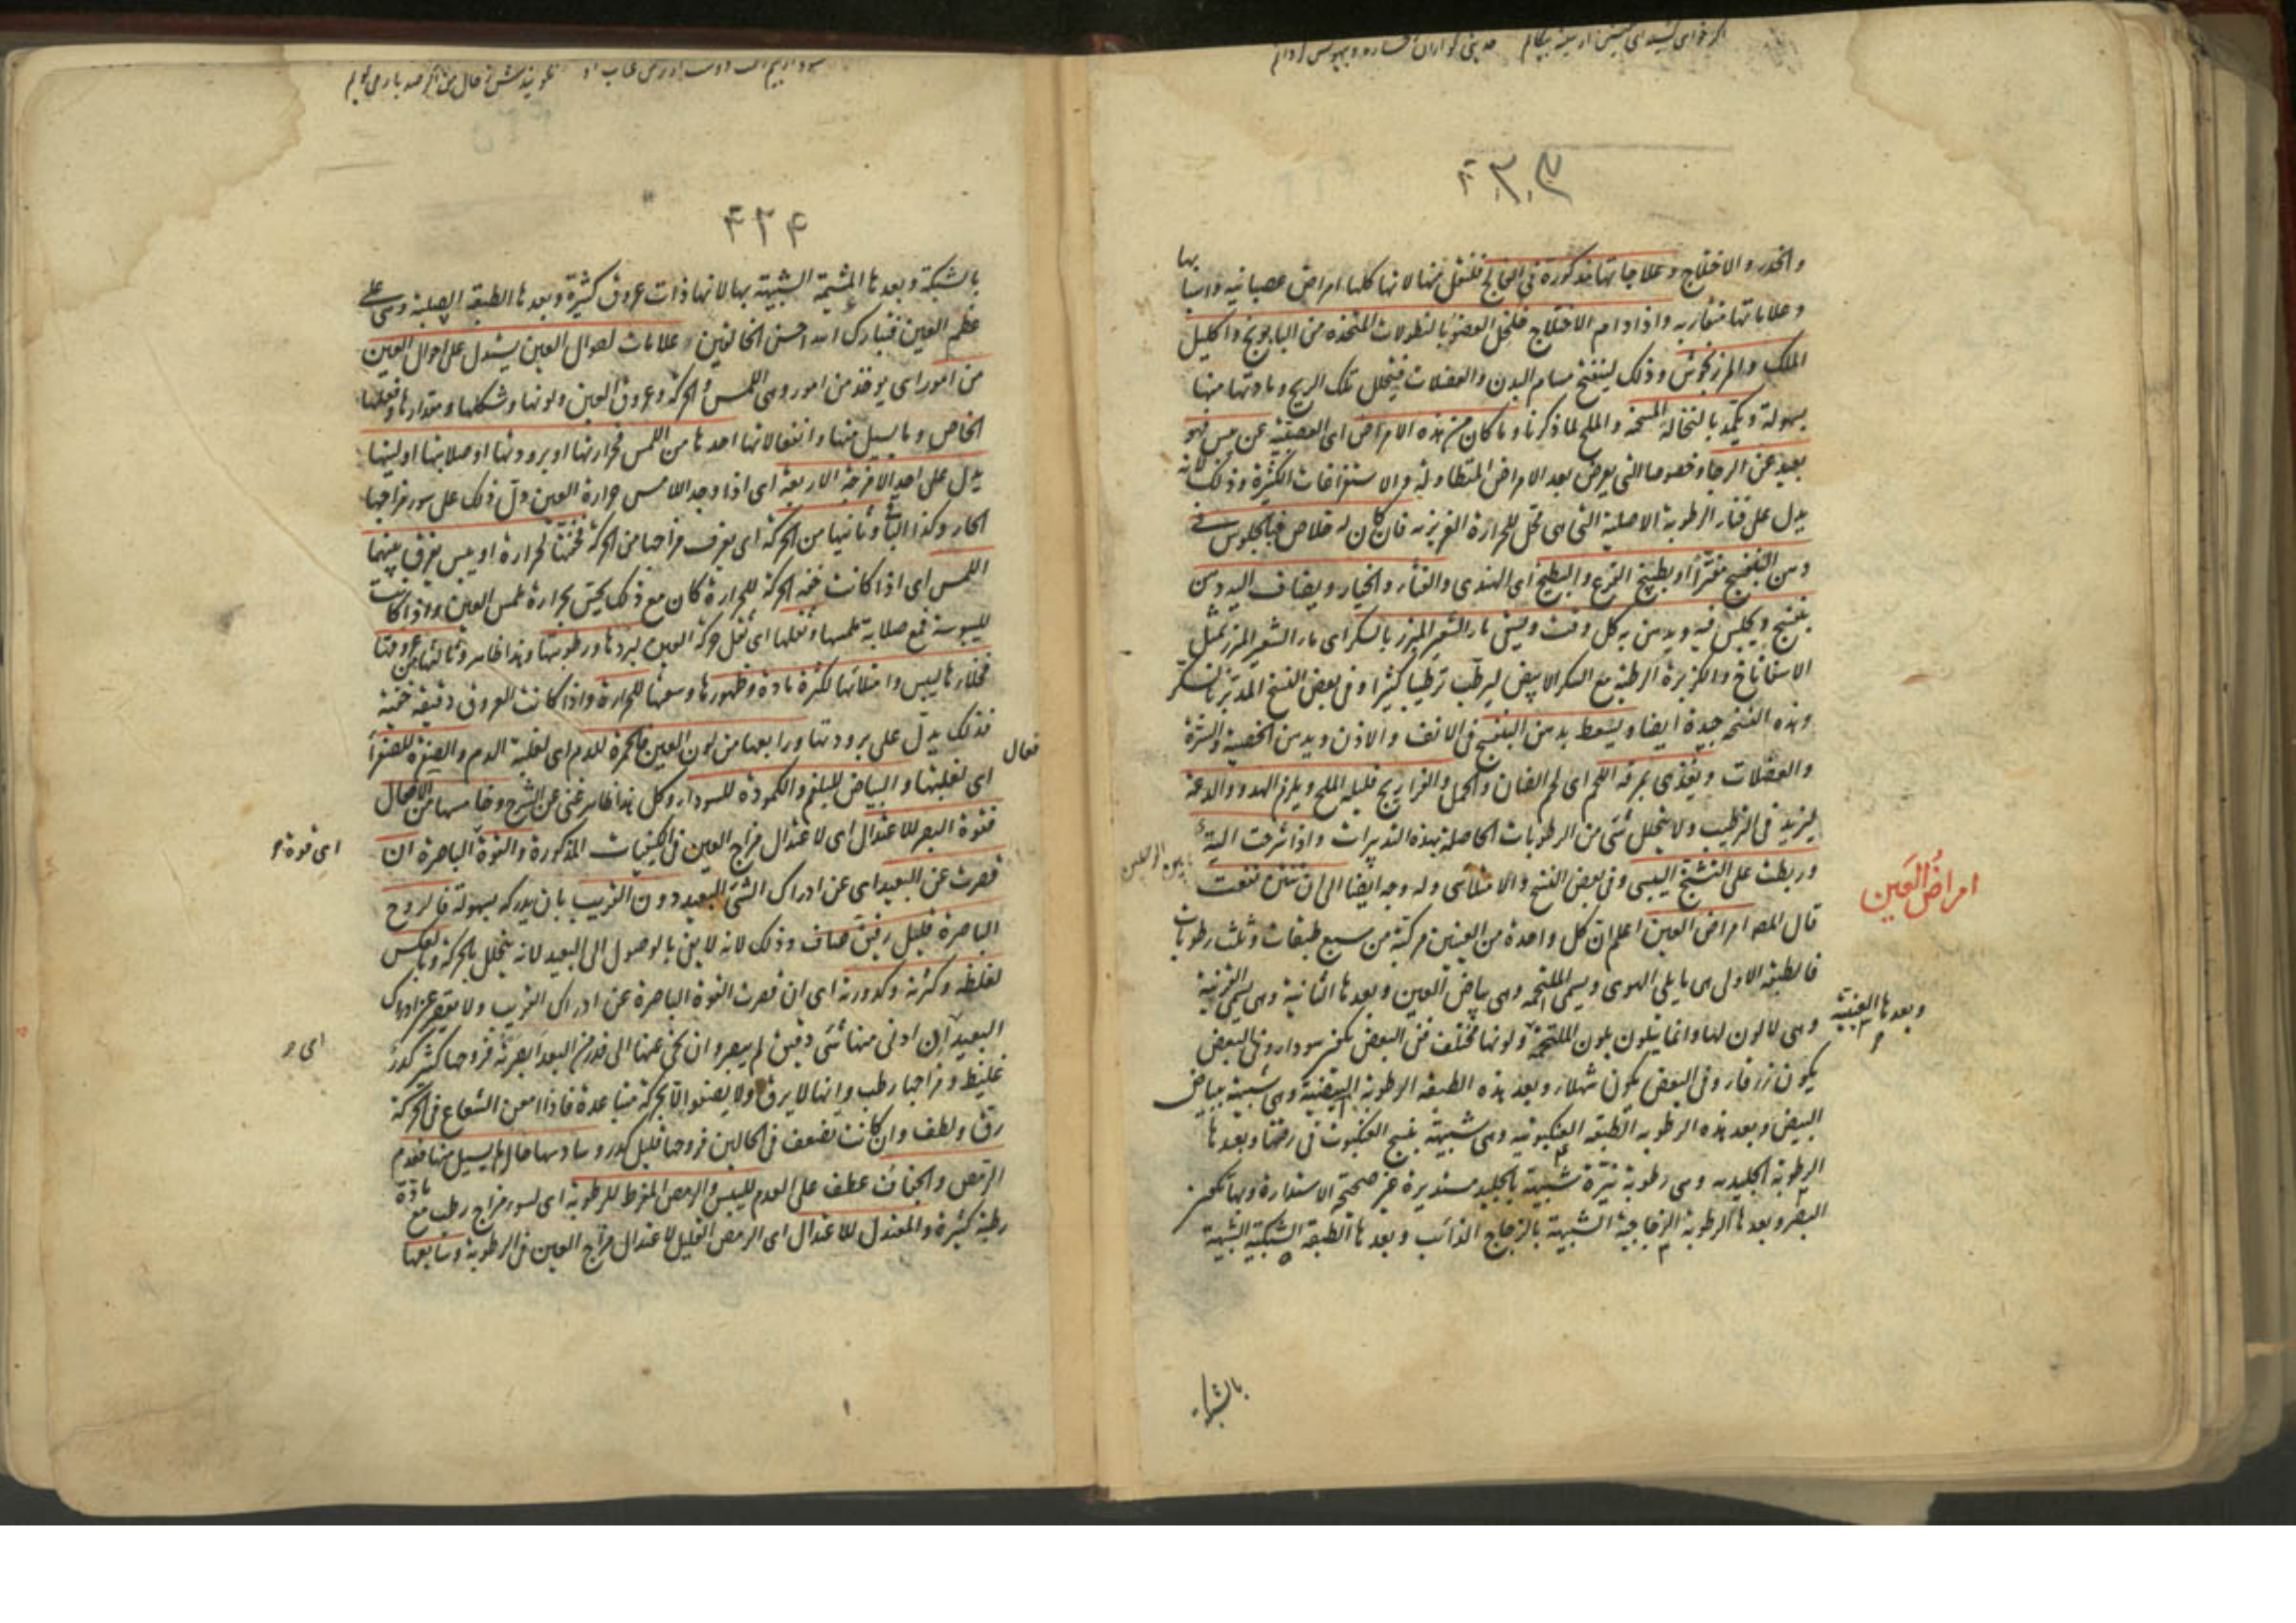 ٤٣٣
والخدر والاختلاج وعلاجاتها مذكورة فى الفالج فلتنقل منها لانها كلها امراض عصبانية واسبابها
وعلاماتها متقاربه واذا دام الاختلاج فليحل العضو بالنطولات المتخذه من البابونج واكليل
الملك والمرزنجوش وذلك لينفتح مسام البدن والعضلات فيتحلل تلك الريح ومادتها منها
بسهولة ويكمد بالنخالة المسخنه والملح لما ذكرنا وما كان من هذه الامراض اى العصبية عن يبس فهو
بعيد عن الرجا وخصوصا التى يعرض بعد الامراض المتطاولة والاستفراغات الكثيرة وذلك لانه
يدل على فناء الرطوبة الاصلية التى هى محل للحرارة الغريزيه فان كان له خلاص فبالجلوس فى
دهن البنفسج مفترا او بطبيخ القرع والبطيخ اى الهندى والقثاء والخيار ويضاف اليه دهن
بنفسج ويجلس فيه ويدهن به كل وقت ويسقى ماء الشعير المبرز بالسكر اى ماء الشعير المبرز بمثل
الاسفاناخ والكزبرة الرطبة مع السكر الابيض ليرطب ترطيبا كثيرا وفى بعض النسخ المدبر بالسكر
وهذه النسخه جيدة ايضا ويسعط بدهن البنفسج فى الانف والاذن ويدهن الخصية والسرة
والعضلات ويغذى بمرقه اللحم اى لحم الضان والحمل والفراريج قليلة الملح ويلزم الهدو والدعة
ليزيد فى الترطيب ولا يتحلل شئ من الرطوبات الحاصلة بهذه التدبيرات واذا شرحت الية
وربطت على التشنج اليبسى وفى بعض النسخ والامتلائى وله وجه ايضا الى ان تنتن نفعت
قال المصه امراض العين اعلم ان كل واحدة من العينين مركبة من سبع طبقات وثلث رطوبات
امراض العين
فالطبقه الاولى هى ما يلى الهوى ويسمى الملتحمه وهى بياض العين وبعدها الثانية وهى يسمى القرنية
وبعدها العنبية
وهى لا لون لها وانما يتلون بلون الملتحمة ولونها مختلف ففى البعض يكون سوداء وفى البعض
يكون زرقاء وفى البعض يكون شهلاء وبعد هذه الطبقه الرطوبة البيضية وهى شبيهة ببياض
البيض وبعد هذه الرطوبه الطبقه العنكبوتيه وهى شبيهة بنسج العنكبوت فى رقتها وبعدها
الرطوبة الجليديه وهى رطوبة نيرة شبيهة بالجليد مستديرة غير صحيحة الاستدارة وبها يكون
البصر وبعدها الرطوبة الزجاجية الشبيهة بالزجاج الذائب وبعدها الطبقه الشبكية الشبيهة
٤٣٤
بالشبكة وبعدها المشيمة الشبيهة بها لانها ذات عروق كثيرة وبعدها الطبقه الصلبة وهى على
عظم العين فتبارك الله احسن الخالقين علامات احوال العين يستدل على احوال العين
من امور اى يوخذ من امور وهى اللمس والحركة وعروق العين ولونها وشكلها ومقدارها وفعلها
الخاص وما يسيل منها وانفعالاتها احدها من اللمس فحرارتها او برودتها او صلابتها او لينها
يدل على احد الامزجة الاربعة اى اذا وجد اللامس حرارة العين دل ذلك على سوء مزاجها
الحار وكذا الباقى وثانيها من الحركة اى يعرف مزاجها من الحركة فخفتها لحرارة او يبس يفرق بينهما
اللمس اى اذا كانت خفه الحركة للحرارة كان مع ذلك يحس بحرارة ملمس العين واذا كانت
لليبوسة فمع صلابة ملمسها وثقلها اى ثقل حركة العين لبردها ورطوبتها وهذا ظاهر وثالثها من عروقها
فخلاءها ليبس وامتلائها لكثرة مادة وظهورها وسعتها للحرارة واذا كانت العروق دقيقة خفية
فذلك يدل على برودتها ورابعها من لون العين فالحمرة للدم اى لغلبة الدم والصفرة للصفراء
اى لغلبتها والبياض للبلغم والكمودة للسوداء وكل هذا ظاهر غنى عن الشرح وخامسها من الافعال
فقوة البصر للاعتدال اى لاعتدال مزاج العين فى الكيفيات المذكورة والقوة الباصرة ان
قصرت عن البعيد اى عن ادراك الشئ البعيد دون القريب بان يدركه بسهولة فالروح
الباصرة قليل رقيق صاف وذلك لانه لا يفى بالوصول الى البعيد لانه يتحلل بالحركة وبالعكس
لغلظه وكثرته وكدورته اى ان قصرت القوة الباصرة عن ادراك القريب ولا يقصر عن ادراك
البعيد ان ادنى منها شئ دقيق لم يبصر وان نحى عنها الى قدر من البعد ابصرته فروحها كثير كدر
غليظ ومزاجها رطب وانها لا يرق ولا يصفو الا بحركة متباعدة فاذا امعن الشعاع فى الحركة
رق ولطف وان كانت تضعف فى الحالين فروحها قليل كدر وسادسها حال ما يسيل منها فعدم
الرمص والجفاف عطف على العدم لليبس والرمص المفرط للرطوبة اى لسوء مزاج رطب مع مادة
رطبة كثيرة والمعتدل للاعتدال اى الرمص القليل لاعتدال مزاج العين فى الرطوبة وسابعها